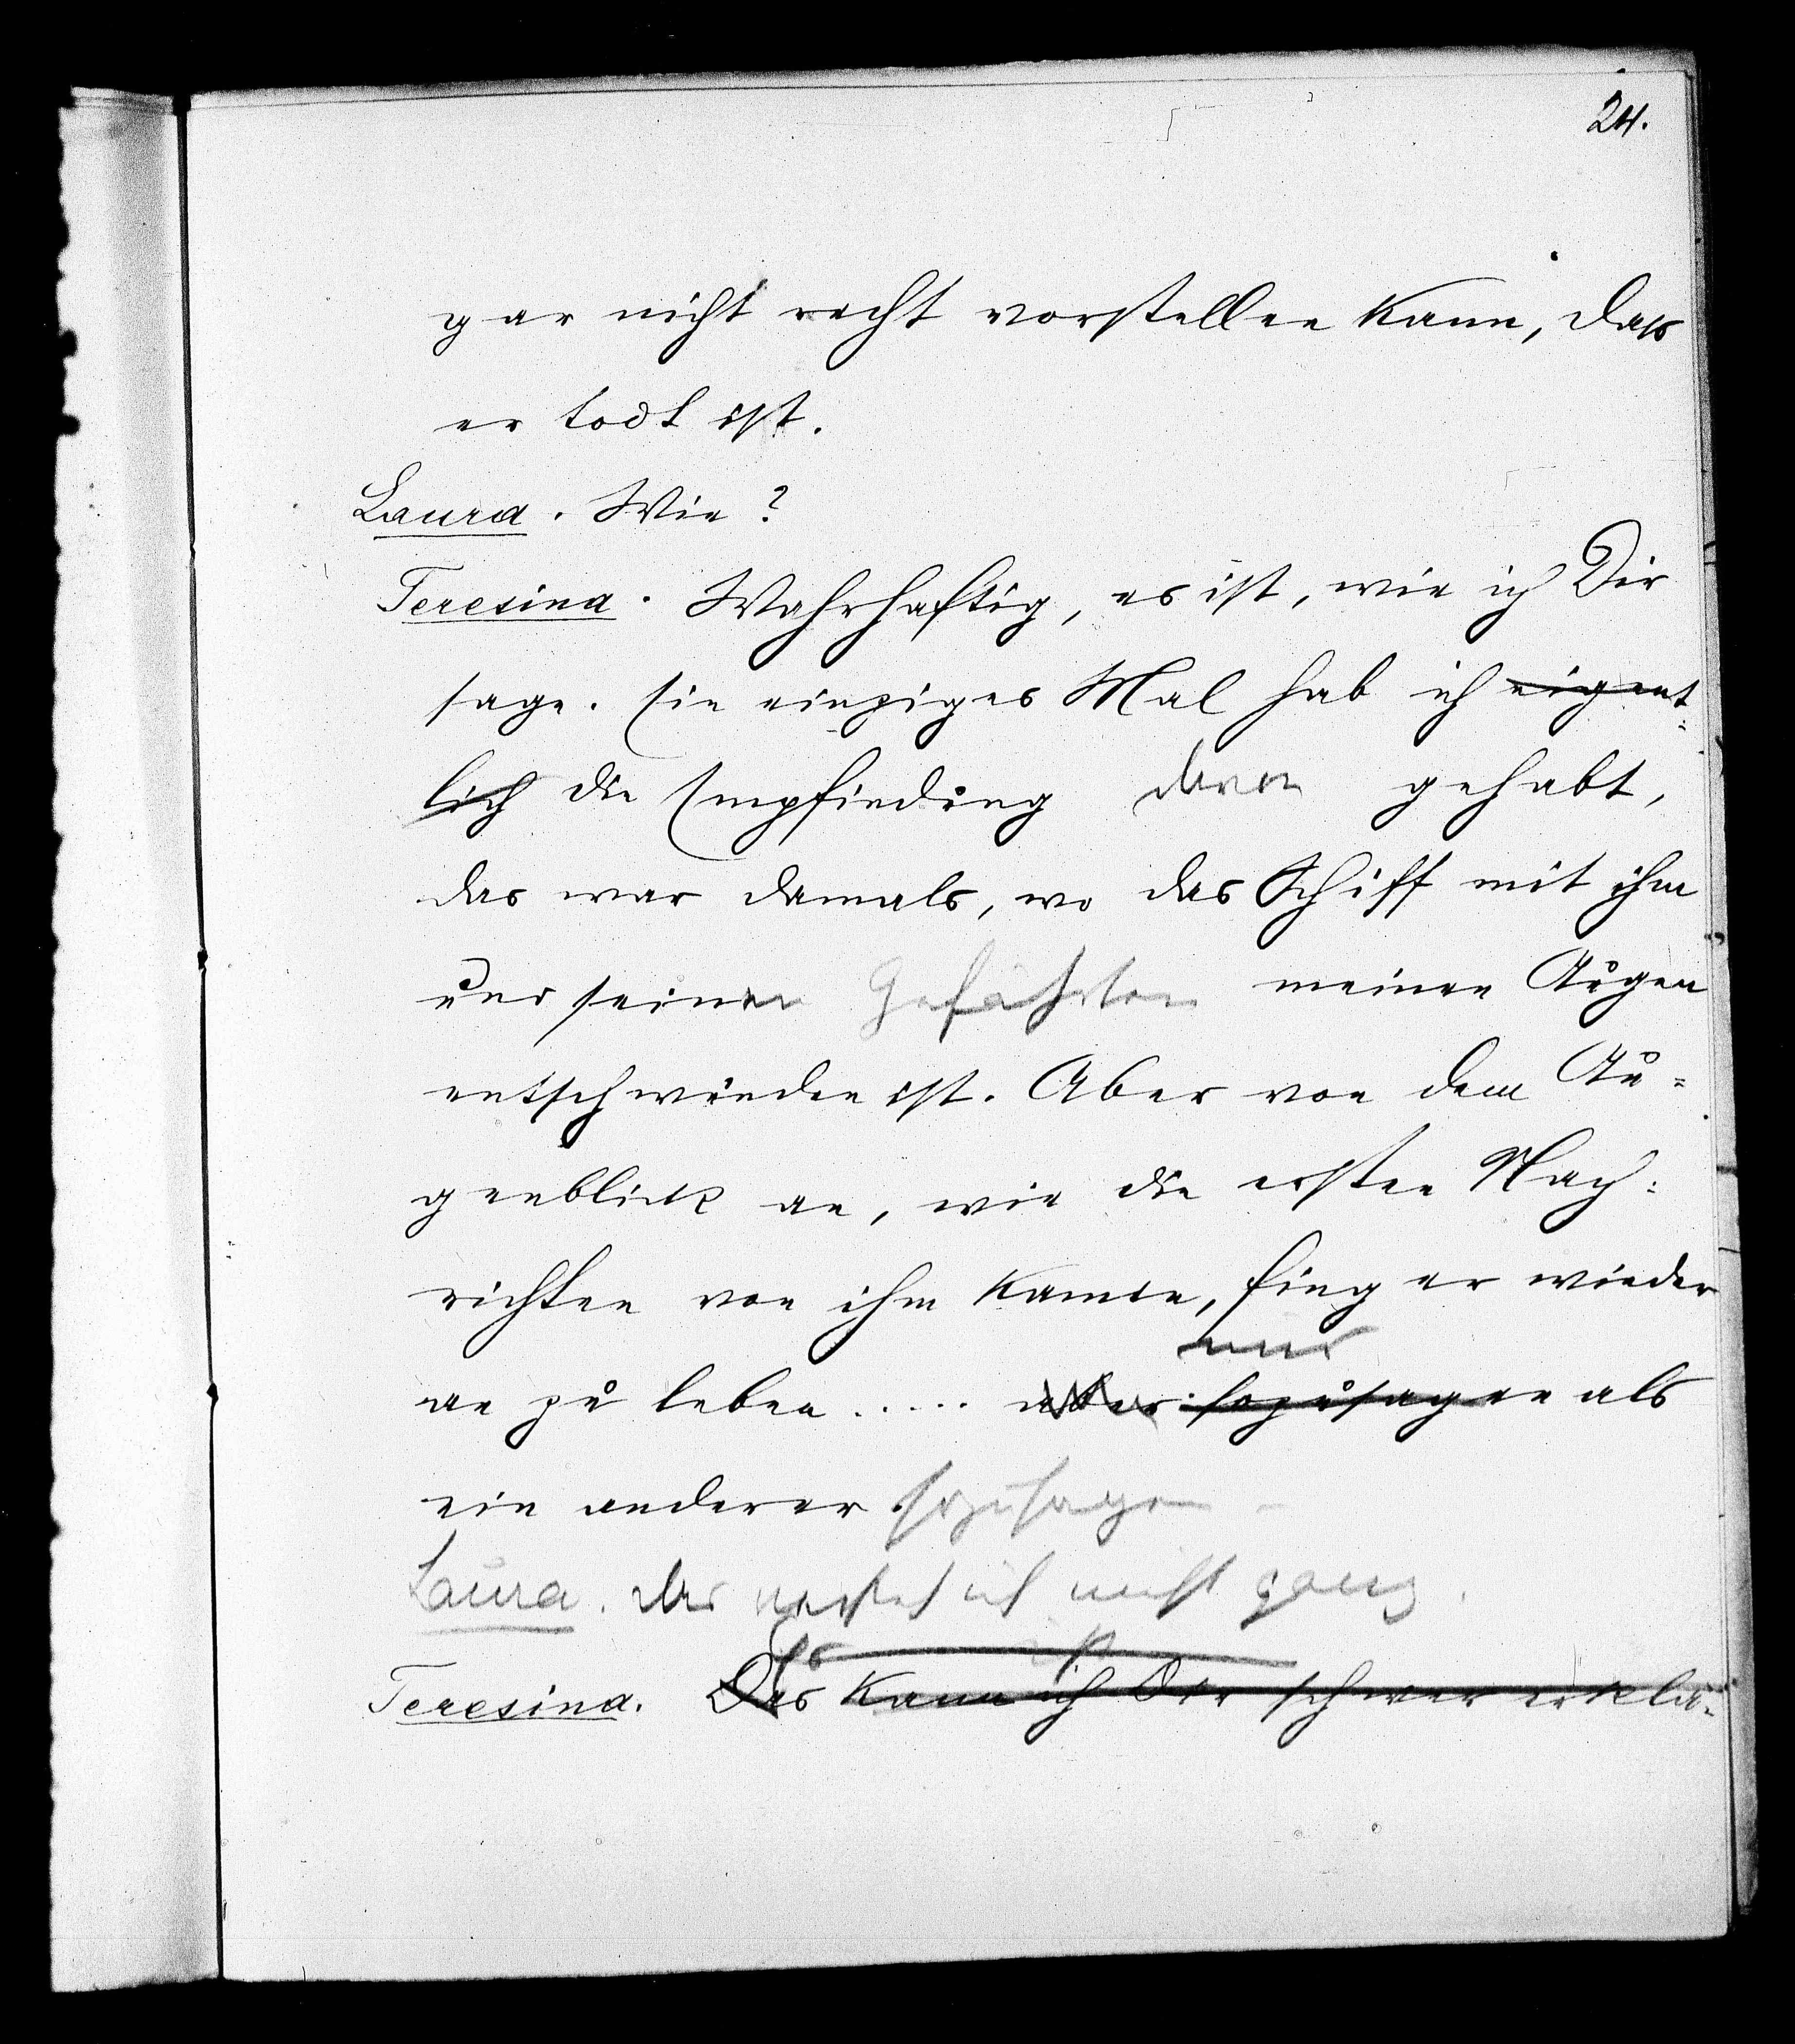 24.
gar nicht recht vorstellen kann, dass
er todt ist.
Laura. Wie?
Teresina. Wahrhaftig, es ist, wie ich Dir
sage. Ein einziges Mal hab ich eigent=
lich die Empfindung davon gehabt,
das war damals, wo das Schiff mit ihm
und seinen Gefährten meinen Augen
entschwunden ist. Aber von dem Au=
genblick an, wie die ersten Nach=
richten von ihm kamen, fing er wieder
nur
an zu leben..... aber sozusagen als
ein anderer sozusagen –
Laura. Das versteh ich nicht ganz.
Es
Teresina. Das kann ich Dir schwer erklä=